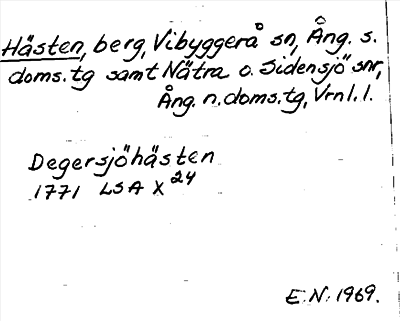 Hästen, berg, Vibyggerå sn, Ång. s.
doms.tg samt Nätra o. Sidensjö snr,
Ång. n. doms.tg, Vrnl. l.
Degersjöhästen
1771 LSA X 24
E.N. 1969.